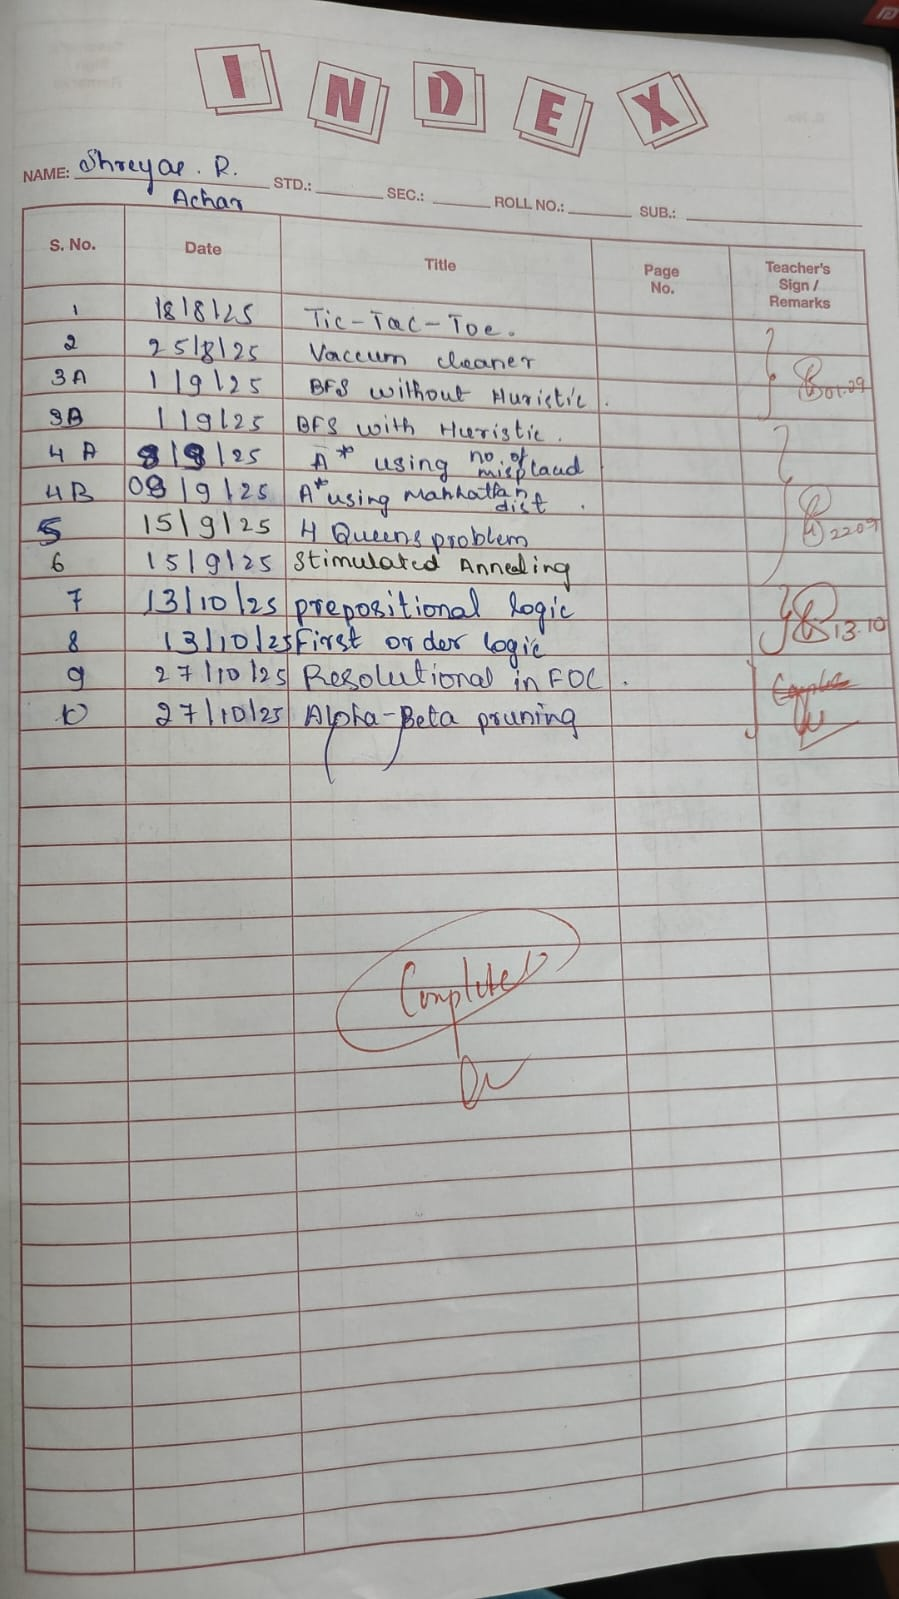 INDEX
NAME: Shreyas . R. STD.: SEC.: ROLL NO.: SUB.:
Achar
S. No. Date Title Page No. Teacher's Sign / Remarks
1 18/8/25 Tic-Tac-Toe.
2 25/8/25 Vaccum cleaner
3A 1/9/25 BFS without Huristic . 01.09
3B 1/9/25 BFS with Huristic .
4 A 8/9/25 A* using no. of misplaud
4B 08/9/25 A* using Manhattan dist .
5 15/9/25 4 Queens problem 2209
6 15/9/25 Stimulated Annealing
7 13/10/25 prepositional logic
8 13/10/25 First order logic 13.10
9 27/10/25 Resolutional in FOC .
10 27/10/25 Alpha-Beta pruning
Completed